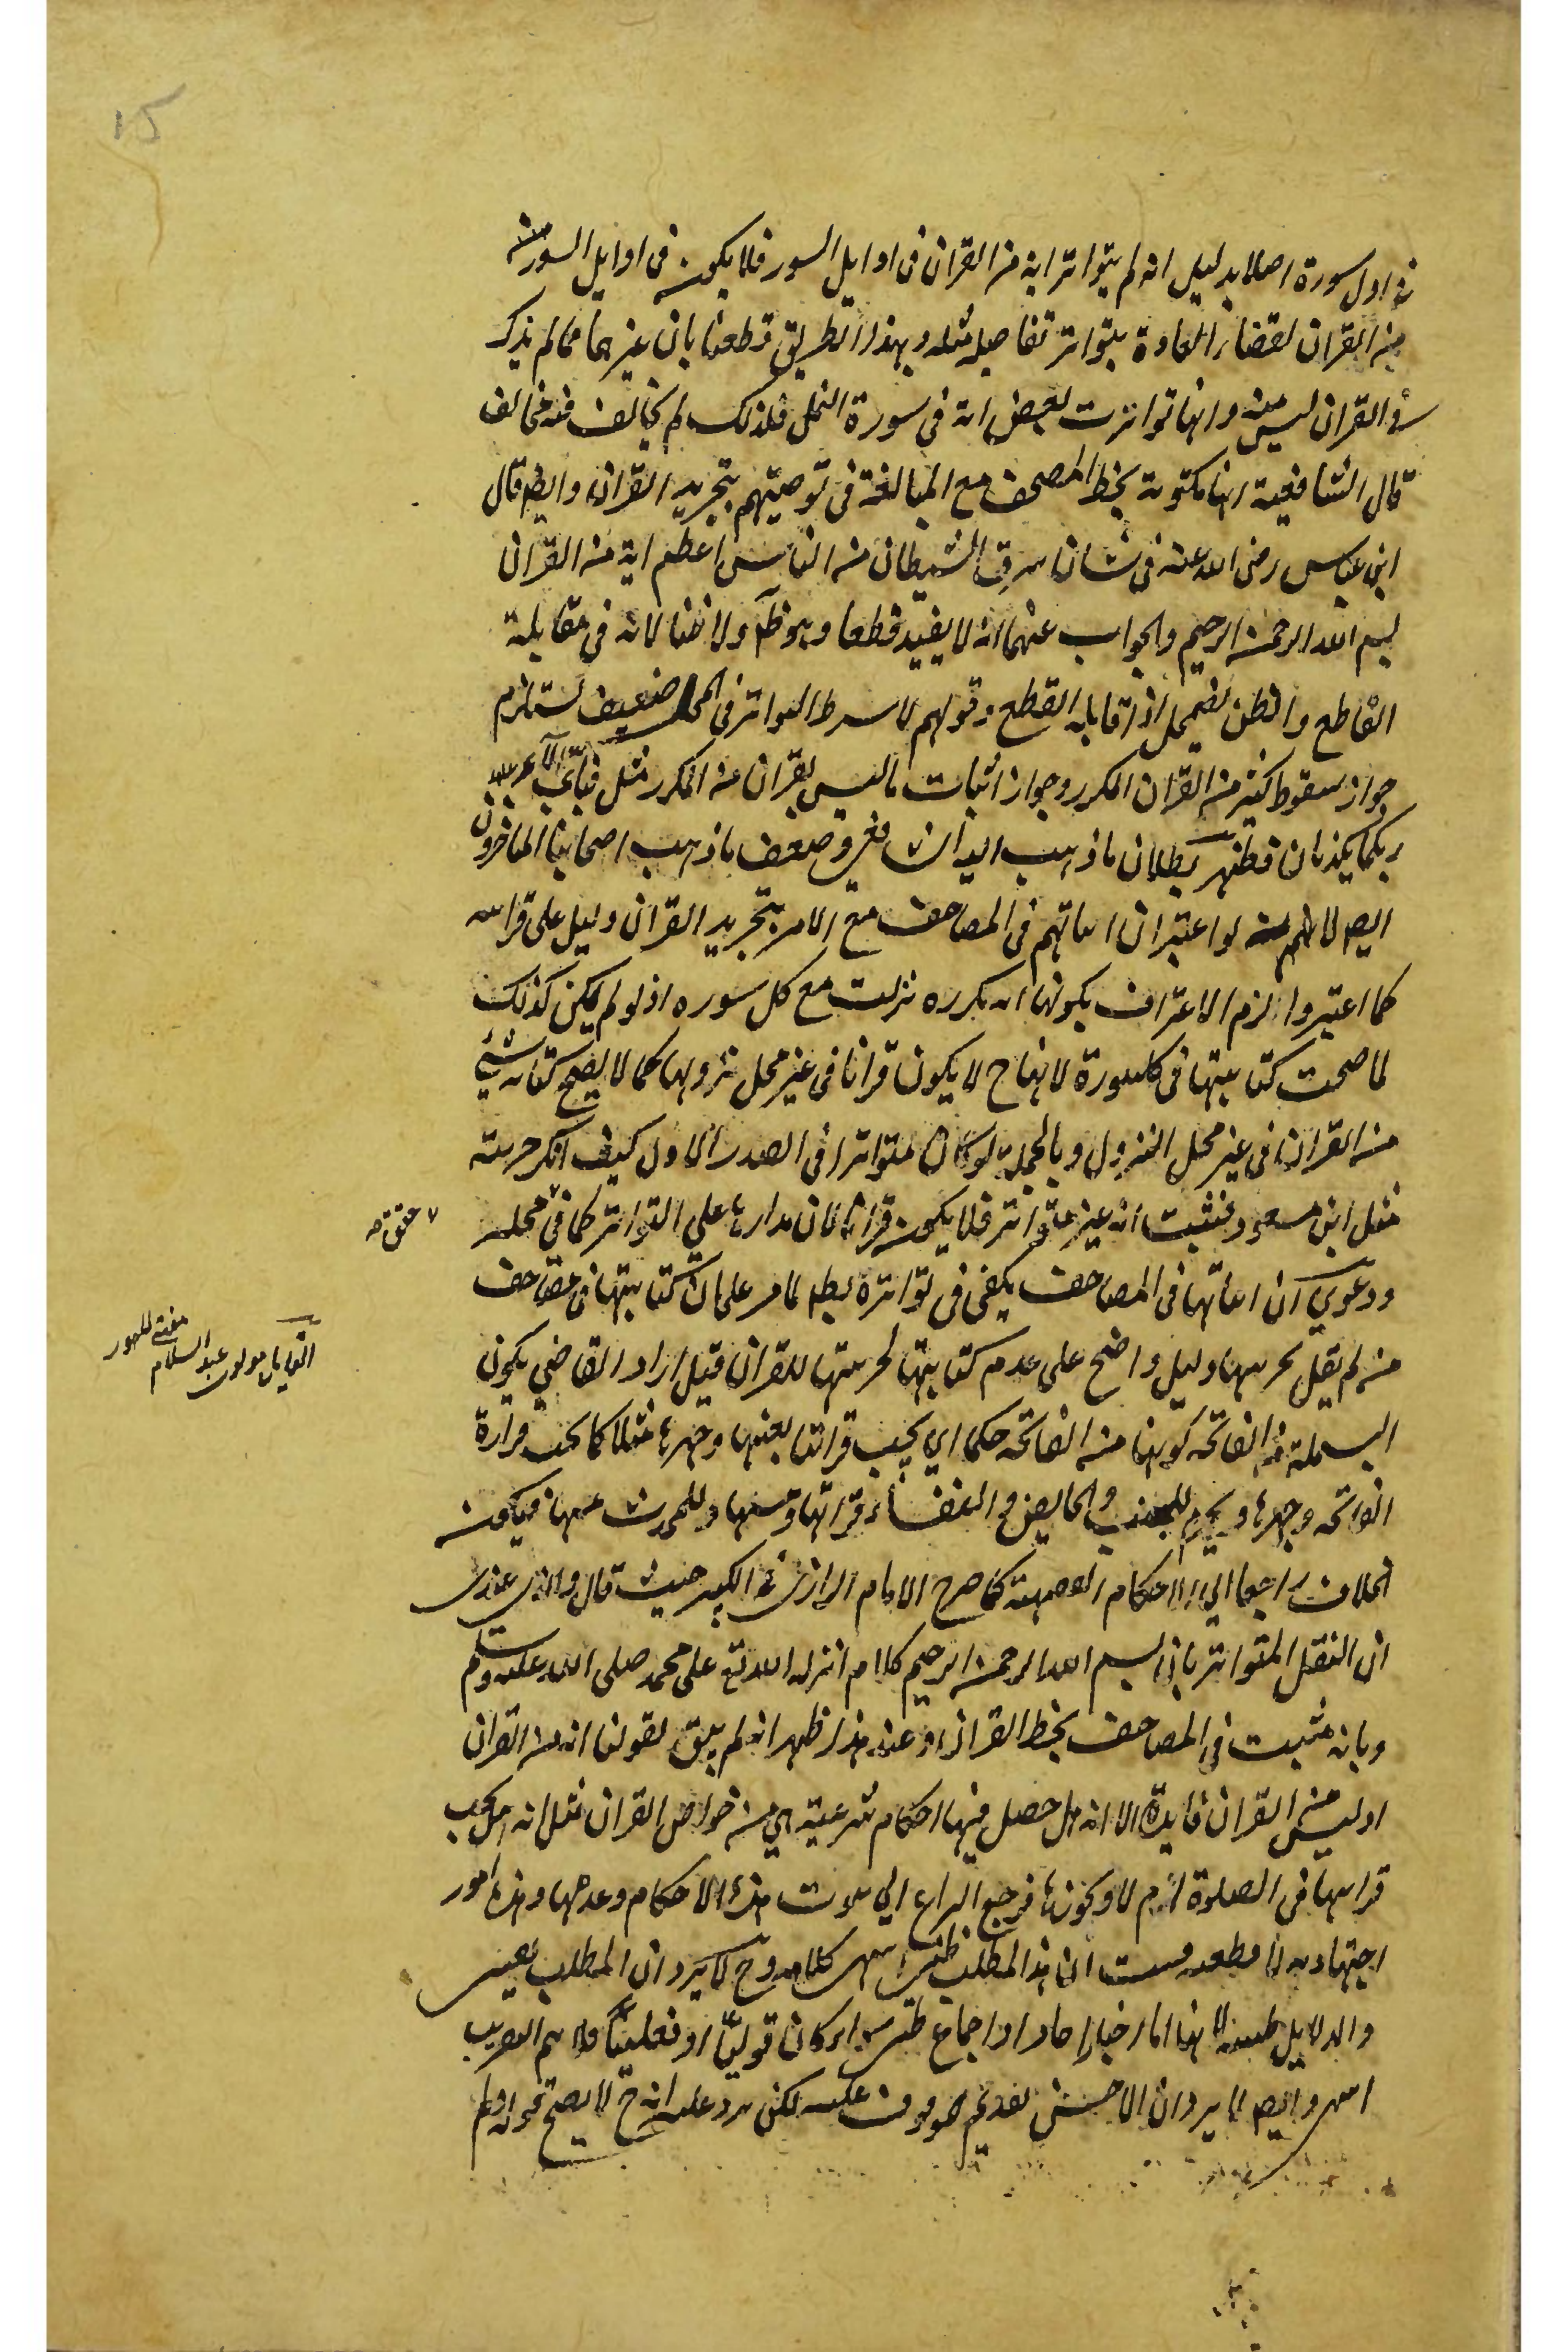 في اول سورة اصلا بدليل انه لم يتواتر انه من القران في اوايل السور فلا يكون في اوايل السور منه
من القران لقضاء العادة بتواتر تفاصيل مثله وبهذا الطريق قطعنا بان غيرهما مما لم يذكر
في القران ليس منه وانها تواترت بعض اية في سورة النمل فلذلك لم يخالف فيه مخالف
قال الشافعية انها مكتوبة بخط المصحف مع المبالغة في توصيتهم بتجريد القران وايضا قال
ابن عباس رضى الله عنه في شان سرق الشيطان من الناس اعظم اية من القران
بسم الله الرحمن الرحيم والجواب عنهما انه لا يفيد قطعا وهو ظ ولا ظنا لانه في مقابلة
القاطع والظن يضمحل اذا قابله القطع وقولهم لا يشترط التواتر في المحل ضعيف يستلزم
جواز سقوط كثير من القران المكرر وجواز اثبات ما ليس بقران من المكرر مثل فباي الاء
ربكما تكذبان فظهر بطلان ما ذهب اليه الشافعي وضعف ما ذهب اصحابنا المتاخرون
ايضا لانهم لو اعتبر ان اثباتهم في المصاحف مع الامر بتجريد القران دليل على قرانيته
كما اعتبروا لزم الاعتراف بكونها اية مكررة نزلت مع كل سورة اذ لو لم يكن كذلك
لما صحت كتابتها في كل سورة لانها ح لا يكون قرانا في غير محل نزولها كما لا يصح كتابة شيء
من القران في غير محل النزول وبالجملة لو كان متواترا في الصدر الاول كيف انكر جزئيته
مثل ابن مسعود فثبت انه غير متواتر فلا يكون قرانا لان مدارها على التواتر كما في محله
حقق صه
ودعوى ان اثباتها في المصاحف يكفي في تواترة بط لما مر على ان كتابتها في مصاحف
من لم يقل بجزئيتها دليل واضح على عدم كتابتها لجزئيتها للقران قيل اراد القاضي بكون
القايل مولوى عبد السلام
مفتى لاهور
البسملة من الفاتحة كونها من الفاتحة حكما اي يجب قرائتها بعينها وجهرها مثلا كما يجب قراءة
الفاتحة وجهرها ويحرم للجنب والحايض والنفساء قرائتها ومسها وللمحدث مسها فيكون
الخلاف راجعا الى الاحكام الفقهية كما صرح الامام الرازي في الكبير حيث قال والذي عندي
ان النقل المتواتر بان بسم الله الرحمن الرحيم كلام انزله الله تع على محمد صلى الله عليه وسلم
وبانه مثبت في المصاحف بخط القران وعند هذا ظهر انه لم يبق لقولنا انه من القران
او ليس من القران فايدة الا انه هل حصل فيها احكام شرعية هي من خواص القران مثل انه هل يجب
قرائتها في الصلوة ام لا ونحوها فرجع النزاع الى ثبوت هذه الاحكام وعدمها وهذه امور
اجتهادية لا قطعية فثبت ان هذا المطلب ظني انتهى كلامه وح لا يرد ان المطلب يقيني
والدلايل ظنية لانها اما اخبار احاد او اجماع ظني سواء كان قوليا او فعليا فلا يتم التقريب
انتهى وايضا لا يرد ان الاحسن تقديم الوقوف عليه لكن يرد عليه انه ح لا يصح قوله ولم